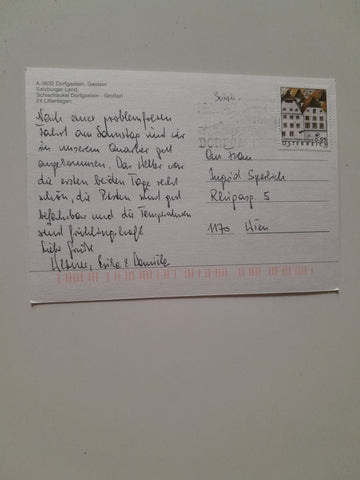 A-5632 Dorfgastein, Gastein
Salzburger Land,
Schischaukel Dorfgastein - Großarl
24 Liftanlagen
Nach einer problemfreien
Fahrt am Samstag sind wir
in unserem Quartier gut
angekommen. Das Wetter war
die ersten beiden Tage recht
schön, die Pisten sind gut
befahrbar und die Temperaturen
sind frühlingshaft
Liebe Grüße
Erika & Daniela
ÖSTERREICH
An Frau
Ingrid
5
1170 Wien